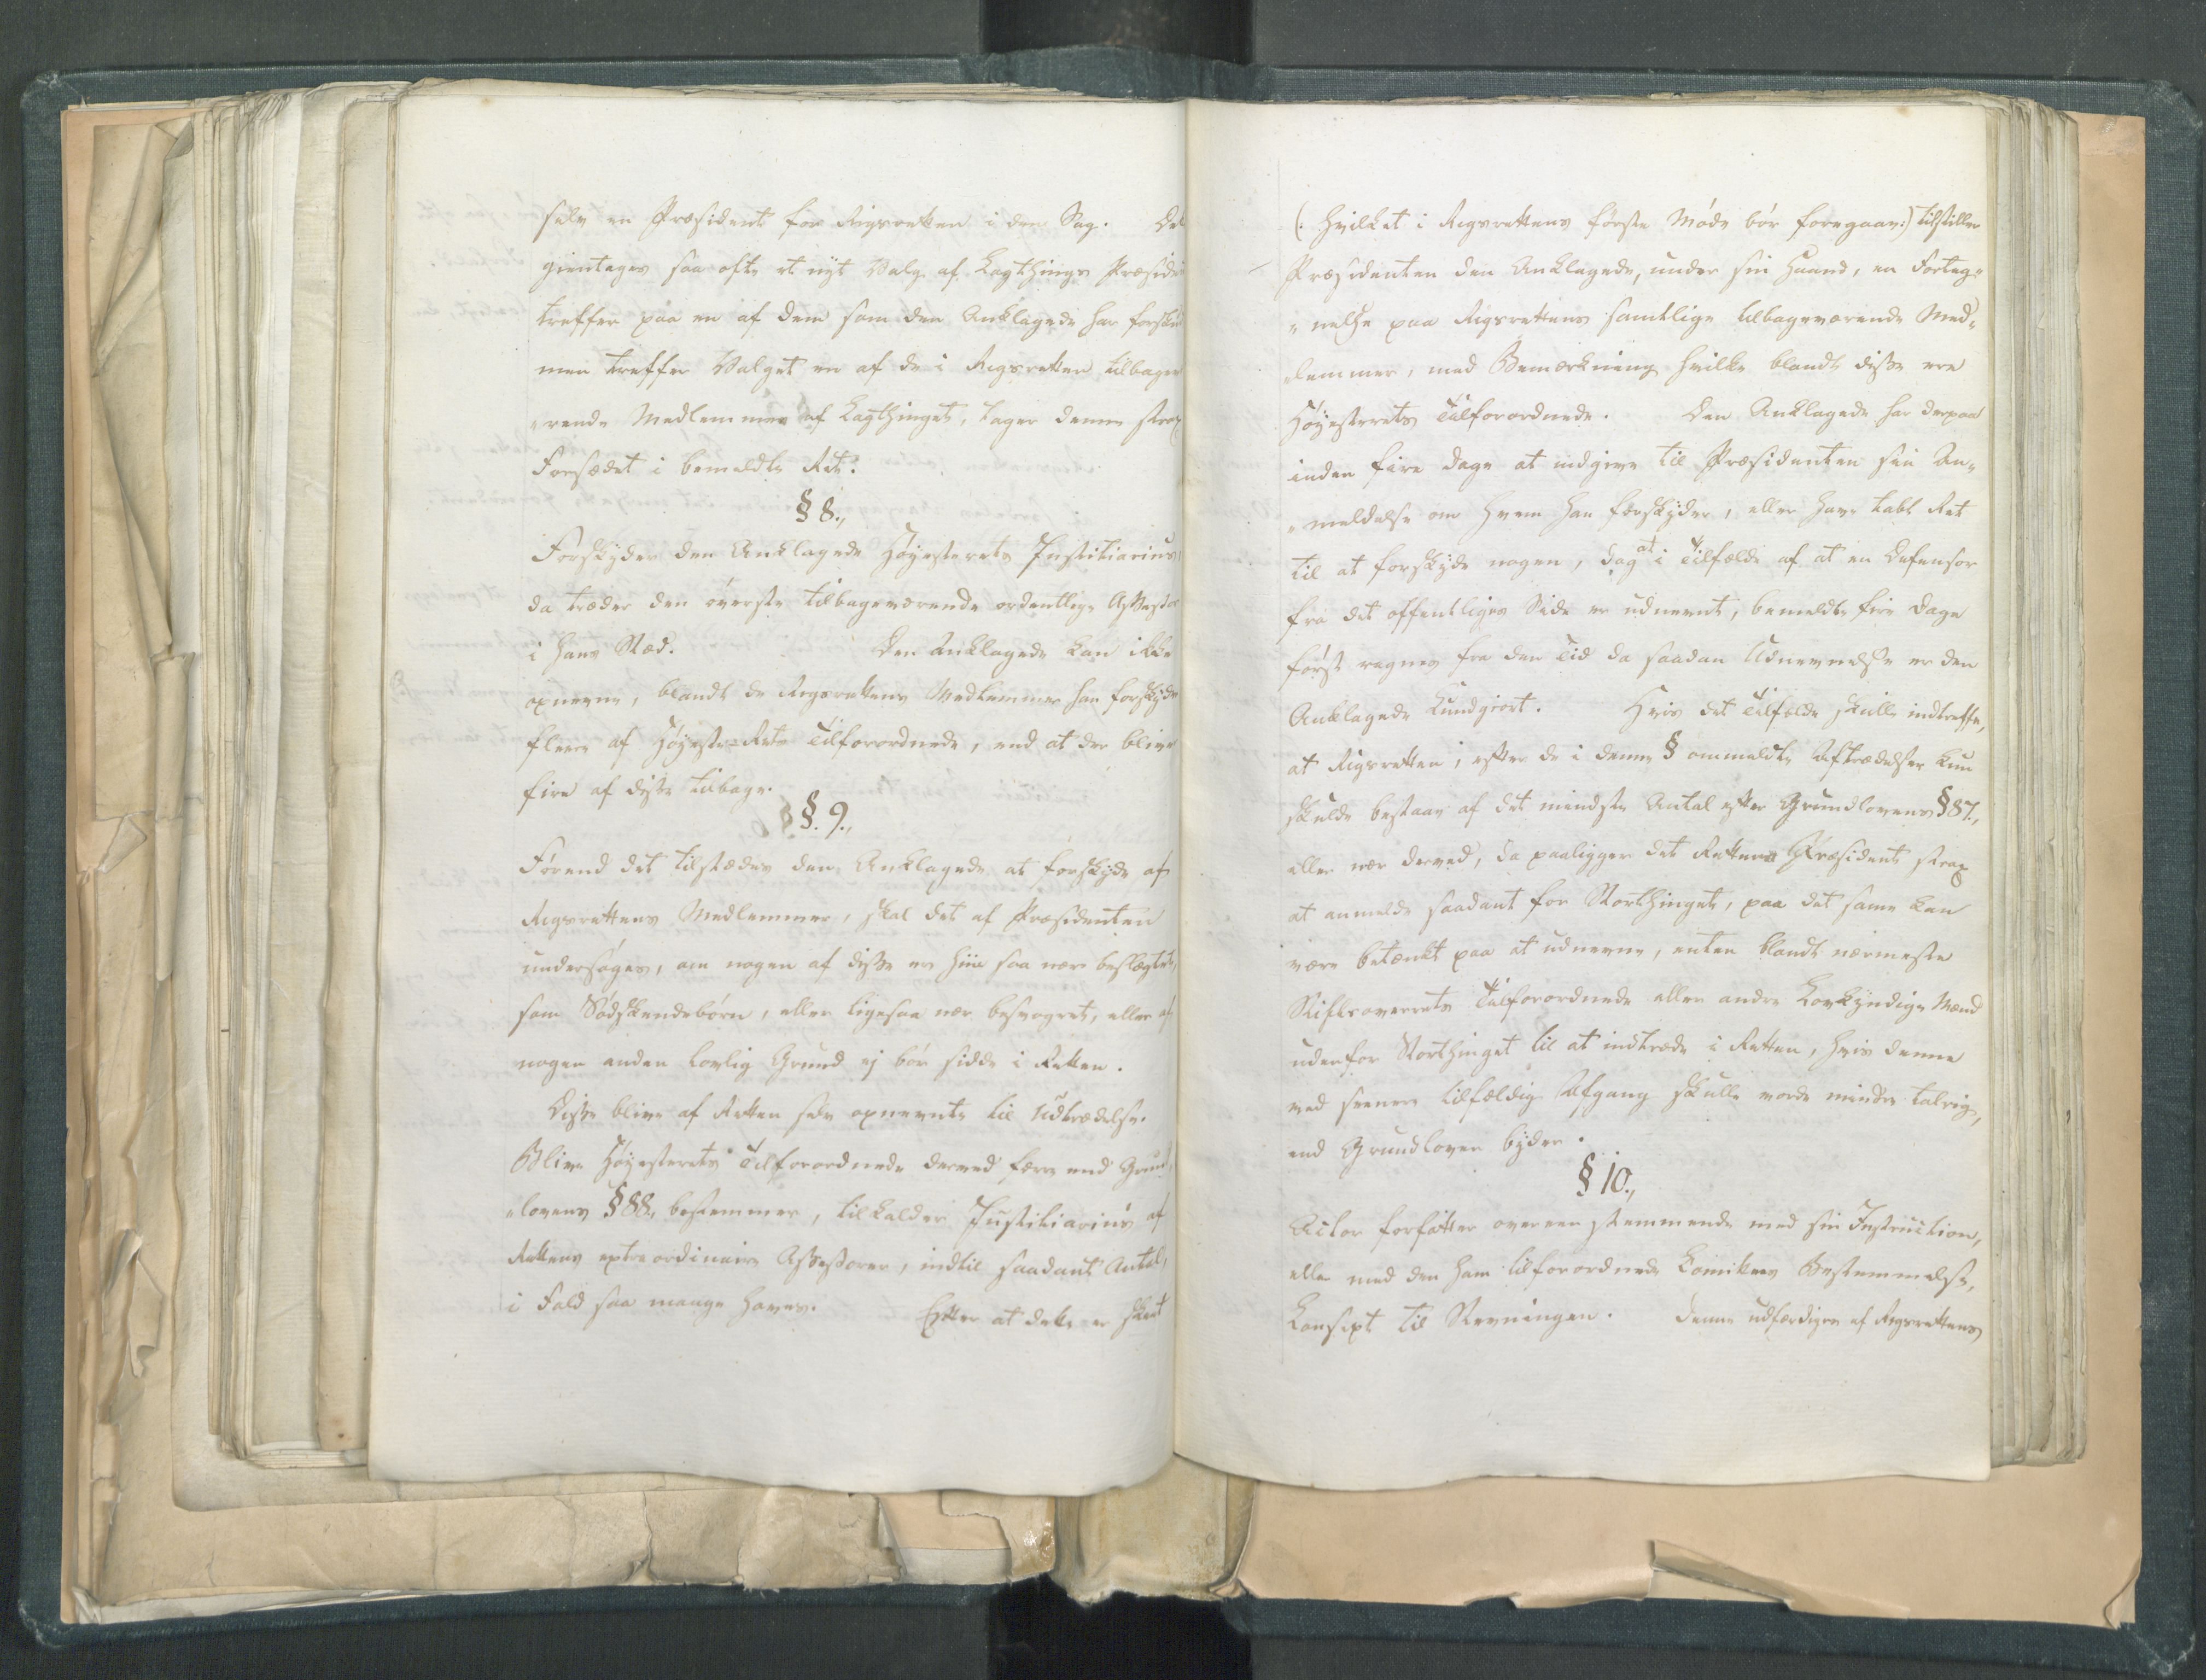 selv en Præsident for Rigsretten i den Sag. Det
gientages saa ofte et nyt Valg af Lagthings Præside
treffer paa en af dem som den Anklagede har forsku
men treffer Valget en af de i Rigsretten tilbagev
„rende Medlemmer af Lagthinget, tager denne strax
Forsædet i bemeldte Ret.
§ 8.,
Forskyder den Anklagede Høyesterets Justitiarius,
da træder den øverste tilbageværende ordentlige Assessor
i hans Sted. Den Anklagede kan ikke
opnevne, blandt de Rigsrettens Medlemmer han forskyde
fleere af Høyeste-Rets Tilforordnede, end at der blive
fire af disse tilbage.
§. 9.,
Førend det tilstædes den Anklagede at forskyde af
Rigsrettens Medlemmer, skal det af Præsidenten
undersøges, om nogen af disse er hiin saa nær beslægtet,
som Sødskendebørn, eller ligesaa nær besvogret, eller af
nogen anden lovlig Grund ej bør sidde i Retten.
Disse blive af Retten selv opnevnte til Udtrædelse.
Blive Høyesterets Tilforordnede derved færre end Grund„
„lovens § 88, bestemmer, tilkalder Justitiarius af
Rettens extraordinaire Assessorer, indtil saadant Antal,
i Fald saa mange haves. Efter at dette er skeet
(: hvilket i Rigsrettens første Møde bør foregaae:) tilstiller
Præsidenten den Anklagede, under sin Haand, en Forteg„
„nelse paa Rigsrettens samtlige tilbageværende Med„
lemmer, med Bemærkning hvilke blandt disse ere
Høyesterets Tilforordnede. Den Anklagede har derpaa
inden fire Dage at indgive til Præsidenten sin An„
„meldelse om hvem han forskyder, eller have tabt Ret
til at forskyde nogen, dog at i Tilfælde af at en Defensor
fra det offentliges Side er udnevnt, bemeldte fire Dage
først regnes fra den Tid da saadan Udnevnelse er den
Anklagede kundgiort. Hvis det Tilfælde skulle indtreffe,
at Rigsretten, efter de i denne § ommeldte Aftrædelser kun
skulde bestaae af det mindste Antal efter Grundlovens § 87.,
eller nær derved, da paaligger det Rettens Præsident strax
at anmelde saadant for Storthinget, paa det same kan
være betænkt paa at udnevne, enten blandt nærmeste
Stiftsoverrets Tilforordnede eller andre Lovkyndige Mænd
udenfor Storthinget til at indtræde i Retten, hvis denne
ved seenere tilfældig Afgang skulle vorde mindre talrig,
end Grundloven byder.
§ 10.,
Actor forfatter overeensstemmende med sin Instruction,
eller med den ham tilforordnede Comitees Bestemmelse,
Consept til Stevningen. Denne udfærdiges af Rigsrettens